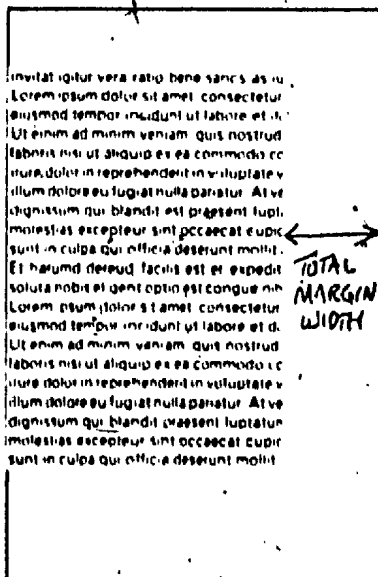 invitat igitur vera ratio bene sanos as iu
Lorem ipsum dolor sit amet consectetur
eiusmod tempor incidunt ut labore et d
Ut enim ad minim veniam quis nostrud
laboris nisi ut aliquip ex ea commodo co
irure dolor in reprehenderit in voluptate v
illum dolore eu fugiat nulla pariatur At ve
dignissum qui blandit est praesent lupt
molestias excepteur sint occaecat cupic
sunt in culpa qui officia deserunt mollit
Et harumd dereud facilis est er expedit
soluta nobis el gent optio est congue nih
Lorem ipsum dolor sit amet consectetur
eiusmod tempor incidunt ut labore et d
Ut enim ad minim veniam quis nostrud
laboris nisi ut aliquip ex ea commodo co
irure dolor in reprehenderit in voluptate v
illum dolore eu fugiat nulla pariatur At ve
dignissum qui blandit praesent luptatum
molestias excepteur sint occaecat cupic
sunt in culpa qui officia deserunt mollit
TOTAL
MARGIN
WIDTH